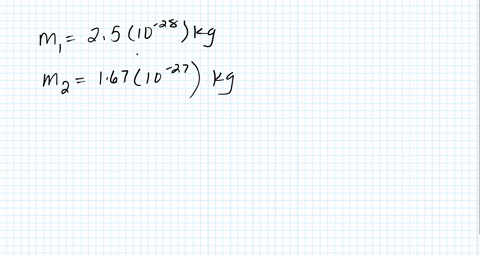 m₁ = 2.5 (10⁻²⁸) kg
m₂ = 1.67 (10⁻²⁷) kg